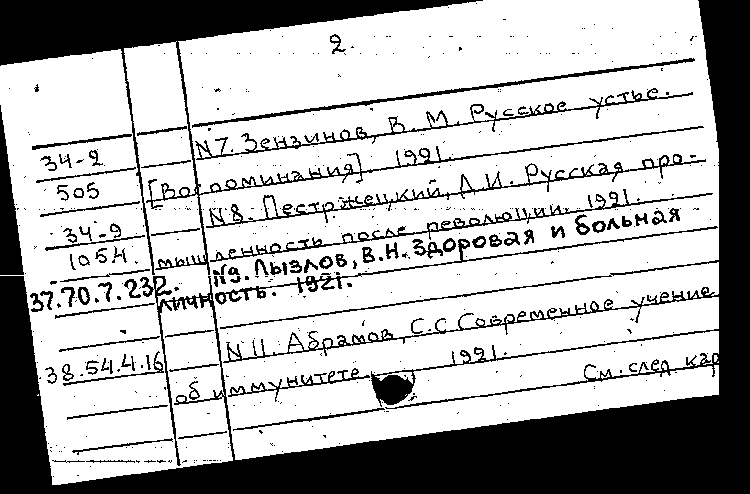 2.
34-2 N7. Зензинов, В. М. Русское устье.
505 [Воспоминания]. 1921.
34-9 N8. Пестржецкий, Д.И. Русская про-
1054. мышленность после революции. 1921.
37.70.7.232. N9. Лызлов, В.Н. Здоровая и больная
личность. 1921.
38.54.4.16 N11. Абрамов, С.С Современное учение
об иммунитете. 1921.
См. след кар